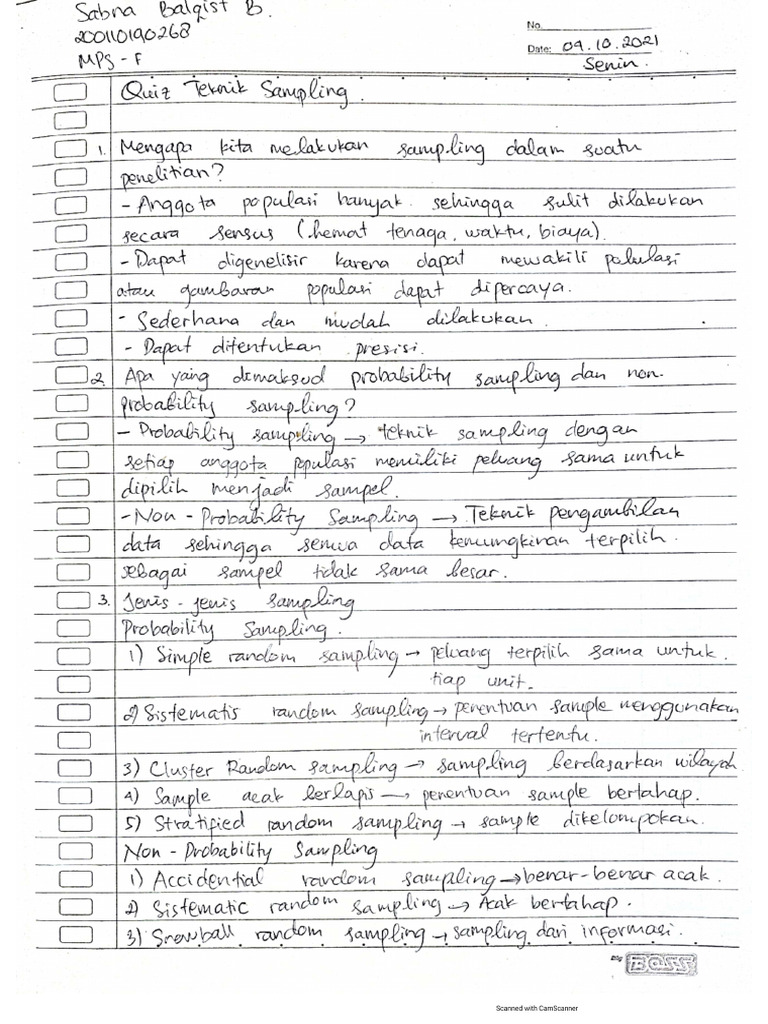 Sabna Balqist B.
200110190268
MPS - F
No.
Date: 04.10.2021
Senin.
Quiz Teknik Sampling.
1. Mengapa kita melakukan sampling dalam suatu
penelitian?
- Anggota populasi banyak sehingga sulit dilakukan
secara sensus (hemat tenaga, waktu, biaya).
- Dapat digenelisir karena dapat mewakili polulasi
atau gambaran populasi dapat dipercaya.
- Sederhana dan mudah dilakukan.
- Dapat ditentukan presisi.
2. Apa yang dimaksud probability sampling dan non-
probability sampling?
- Probability sampling → teknik sampling dengan
setiap anggota populasi memiliki peluang sama untuk
dipilih menjadi sampel.
- Non - Probability Sampling → Teknik pengambilan
data sehingga semua data kemungkinan terpilih
sebagai sampel tidak sama besar.
3. Jenis - jenis sampling
Probability Sampling.
1) Simple random sampling → peluang terpilih sama untuk
tiap unit.
2) Sistematis random sampling → penentuan sample menggunakan
interval tertentu.
3) Cluster Random sampling → sampling berdasarkan wilayah
4) Sample acak berlapis → penentuan sample bertahap.
5) Stratified random sampling → sample dikelompokan.
Non - Probability Sampling
1) Accidential random sampling → benar-benar acak.
2) Sistematic random sampling → Acak bertahap.
3) Snowball random sampling → sampling dari informasi.
By BOSS
Scanned with CamScanner